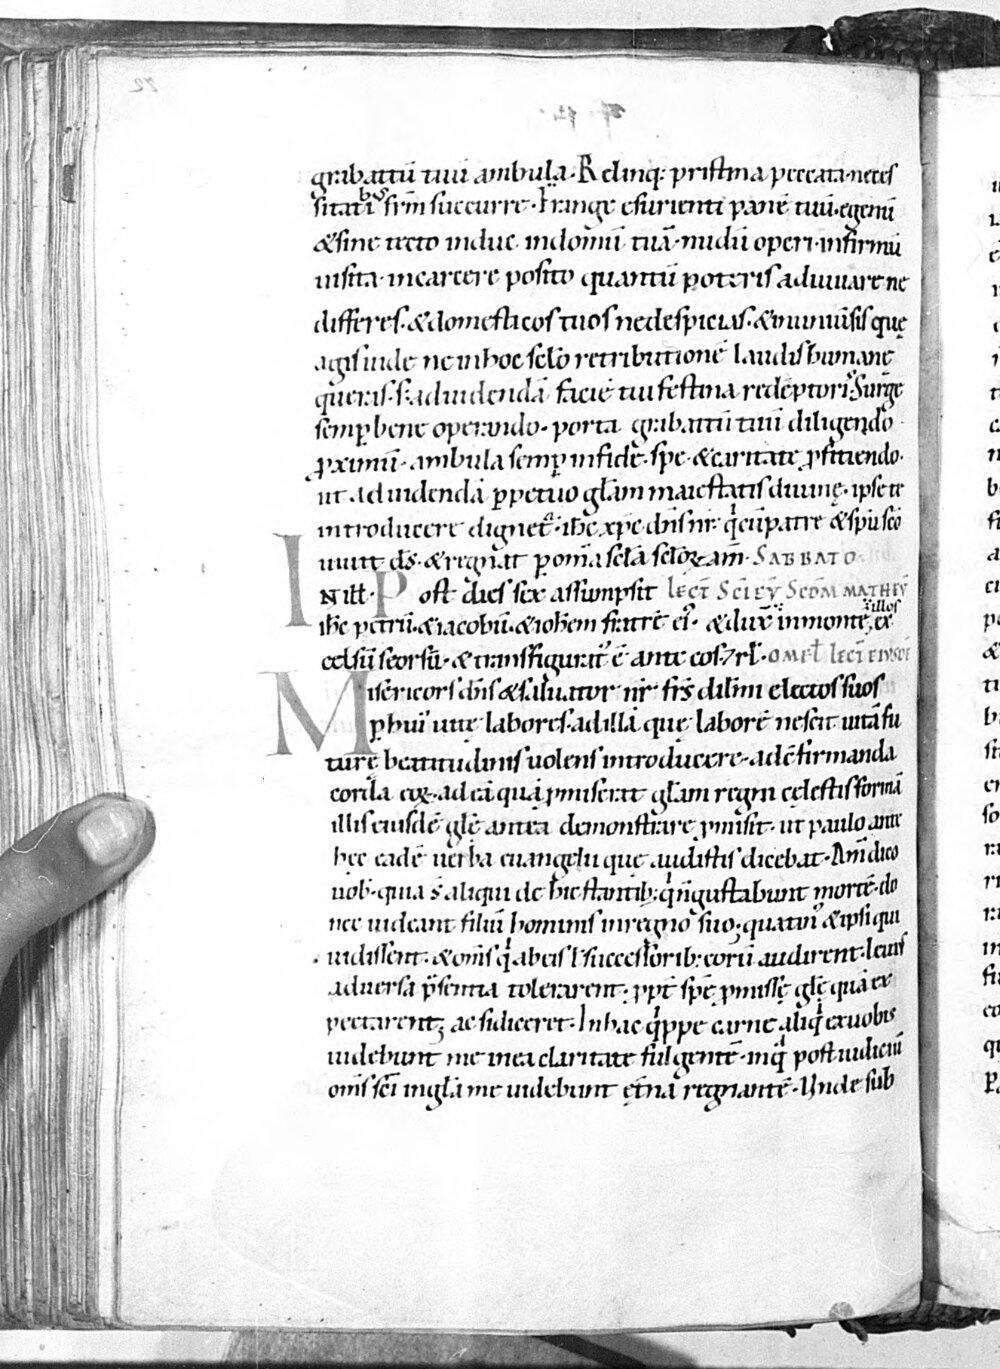 grabattū tuū ambula. Relinq; pristina peccata. neces
sitatib; fr̄m succurre. Frange esurienti panē tuū. egenū
& sine tecto induc in domū tuā. nudū operi. infirmū
uisita. in carcere posito quantū poteris adiuuare ne
differes. & domesticos tuos ne despicias. & in uniūsis quę
agis uide ne in hoc sclo retributionē laudis humanę
queras. s; ad uidendā faciē tui festina redēptoris. Surge
semp bene operando. porta grabattū tuū diligendo
pximū. ambula semp in fide. spe. & caritate pficiendo.
ut ad uidendā ppetuo glām maiestatis diuinę. ipse te
introducere dignet. ih̄c xp̄c dn̄s nr̄. q̄ cū patre & sp̄u sc̄o
uiuit ds̄. & regnat p om̄ia scl̄a scl̄oꝝ am̄. SABBATO
IN ill. Post dies sex assumpsit LECT SCI EV̄ SCDM MATHEV̄
ih̄c petrū. & iacobū. & ioh̄em fratrē ei'. & dux̄ illos in monte ex
celsū seorsū. & transfigurat' ē ante eos. 7 rl̄. OMEL LECT EIUSDĒ
Misericors dn̄s & saluator nr̄ fr̄s dilm̄i electos suos
p hui' uitę labores. ad illā quę laborē nescit uitā fu
turę beatitudinis uolens introducere. ad c̄firmanda
corda eoꝝ. ad eā quā pmiserat glām regni cęlestis formā
illis eiusdē glę antea demonstrare pmisit. ut paulo ante
hęc eadē uerba euangelii quę audistis dicebat. Am̄ dico
uob̄. quia s̄ aliqui de hic stantib; q̄ n̄ gustabunt mortē. do
nec uideant filiū hominis in regno suo. quatin' & ipsi qui
uidissent. & om̄s q̄ ab eis l successorib; eorū audirent. leuius
aduersa p̄sentia tolerarent. ppt̄ spē pmissę glę quā ex
pectarent; ac si diceret. In hac q̄ppe carne aliq̄ ex uobis
uidebunt me in ea claritate fulgentē. in q̄ post iudiciū
om̄s sc̄i in glā me uidebunt ęt̄na regnantē. Unde sub